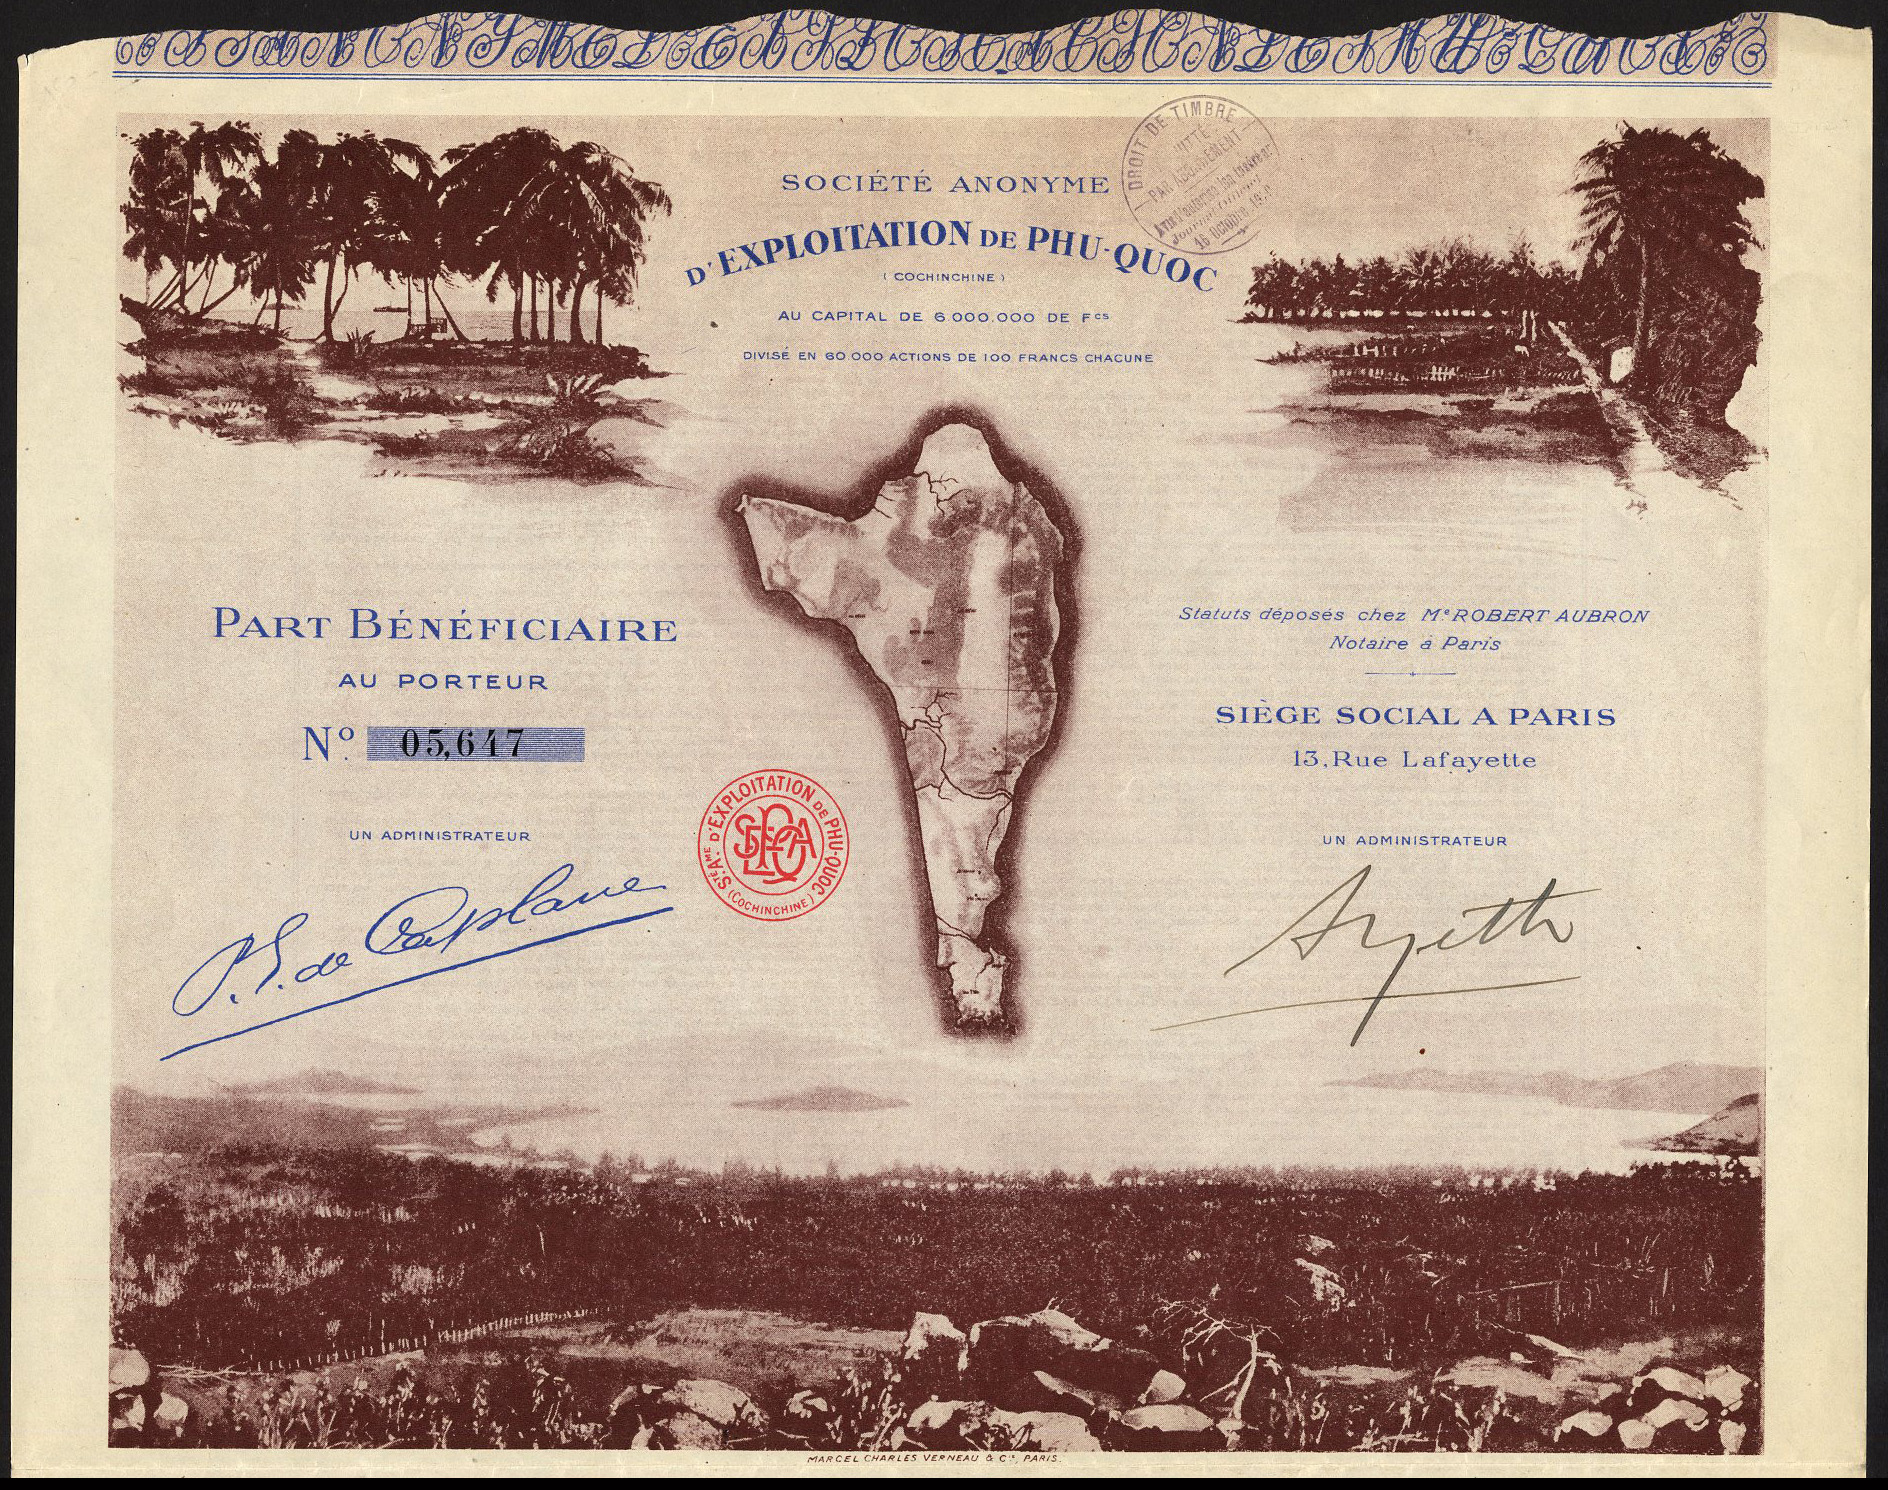 SOCIÉTÉ ANONYME
D'EXPLOITATION DE PHU-QUOC
(COCHINCHINE)
AU CAPITAL DE 6.000.000 DE Fcs
DIVISÉ EN 60.000 ACTIONS DE 100 FRANCS CHACUNE
DROIT DE TIMBRE
PAR
PART BÉNÉFICIAIRE
AU PORTEUR
No. 05,647
UN ADMINISTRATEUR
P. S. de Caplane
Sté Ame D'EXPLOITATION DE PHU-QUOC
(COCHINCHINE)
Statuts déposés chez Me ROBERT AUBRON
Notaire à Paris
SIÈGE SOCIAL A PARIS
13, Rue Lafayette
UN ADMINISTRATEUR
MARCEL CHARLES VERNEAU & Cie, PARIS.